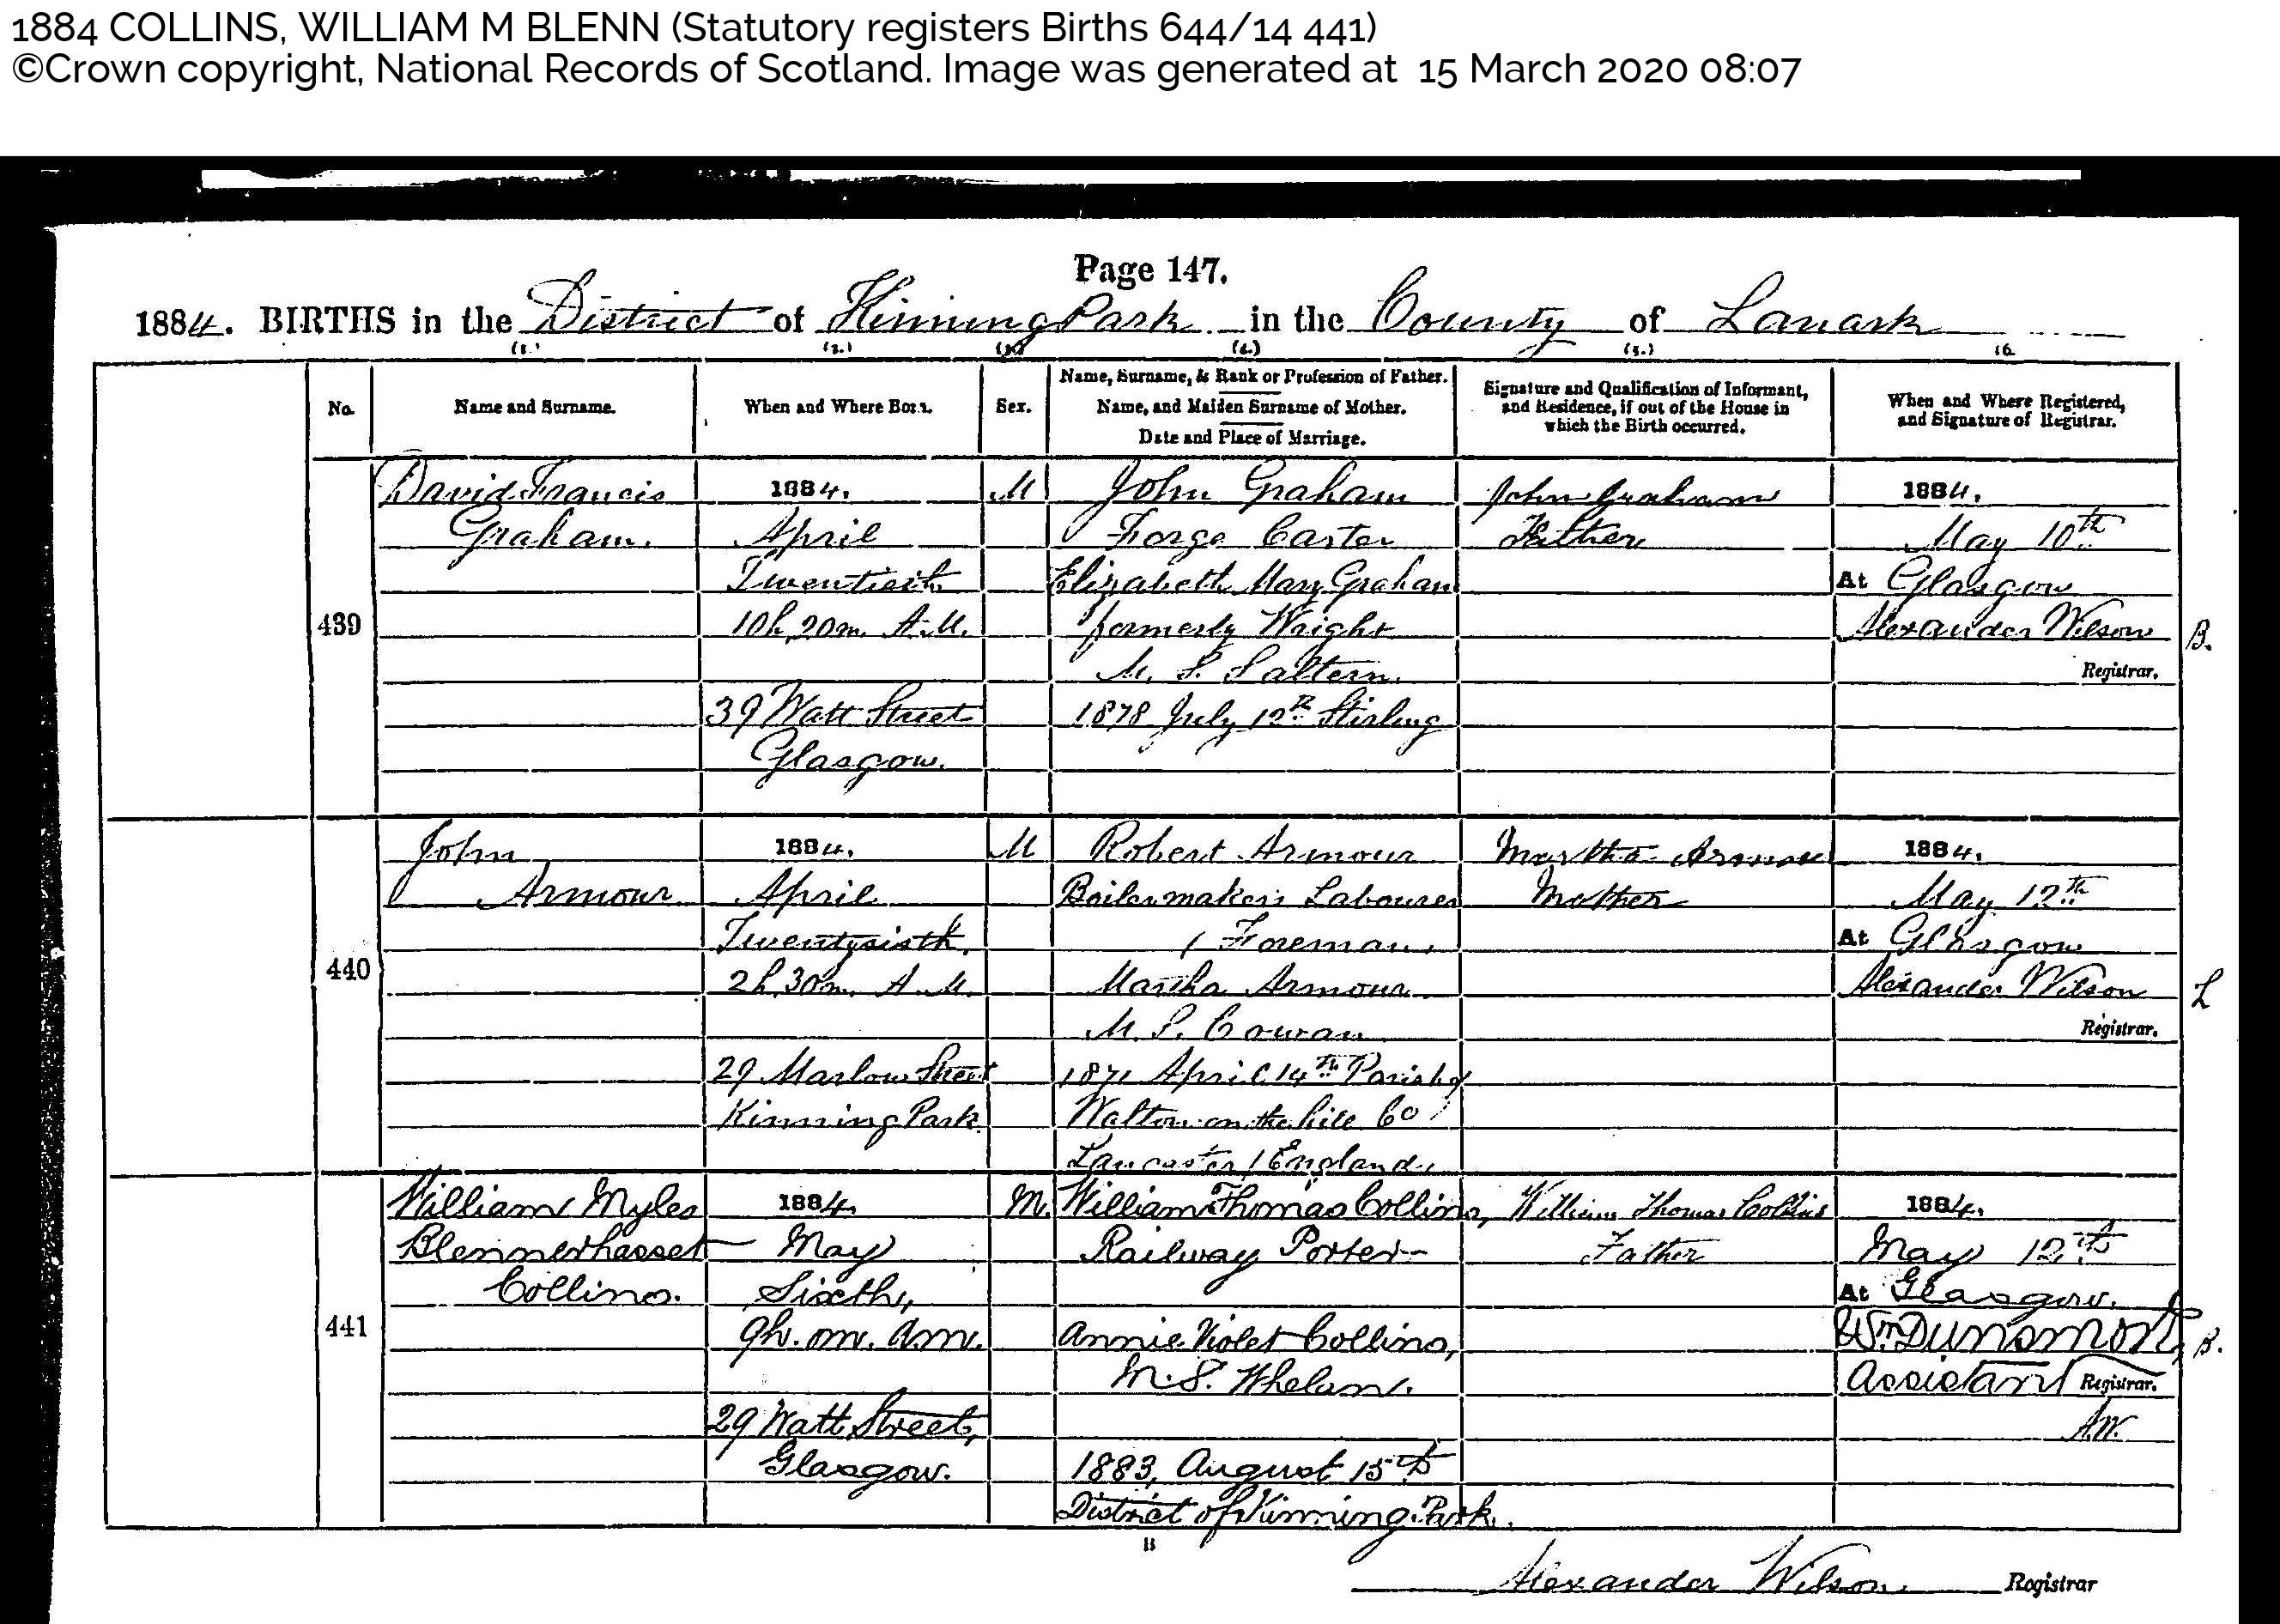 1884 COLLINS, WILLIAM M BLENN (Statutory registers Births 644/14 441)
©Crown copyright, National Records of Scotland. Image was generated at 15 March 2020 08:07
Page 147.
1884. BIRTHS in the District of Kinning Park in the County of Lanark
(1.) (2.) (3.) (4.) (5.) (6.
No. Name and Surname. When and Where Born. Sex. Name, Surname, & Rank or Profession of Father. Name, and Maiden Surname of Mother. Date and Place of Marriage. Signature and Qualification of Informant, and Residence, if out of the House in which the Birth occurred. When and Where Registered, and Signature of Registrar.
David Francis 1884. M John Graham John Graham 1884.
Graham. April Forge Carter Father May 10th
Twentieth Elizabeth Mary Graham At Glasgow
439 10h. 20m. A.M. formerly Wright Alexander Wilson B.
M.S. Saltern. Registrar.
39 Watt Street 1878 July 12th Stirling
Glasgow.
John 1884. M Robert Armour Martha Armour 1884.
Armour April Boilermaker's Labourer Mother May 12th
Twentysixth. (Foreman) At Glasgow
440 2h. 30m. A.M. Martha Armour Alexander Wilson L
M.S. Cowan Registrar.
29 Marlow Street 1871 April 14th Parish of
Kinning Park Walton on the hill Co
Lancaster (England)
William Myles 1884. M. William Thomas Collins, William Thomas Collins 1884.
Blennerhasset May Railway Porter Father May 12th
Collins. Sixth, At Glasgow.
441 9h. 0m. A.M. Annie Violet Collins, Wm. Dunsmore, B.
M.S. Whelan. Assistant Registrar.
29 Watt Street, A.W.
Glasgow. 1883, August 15th
District of Kinning Park.
Alexander Wilson Registrar